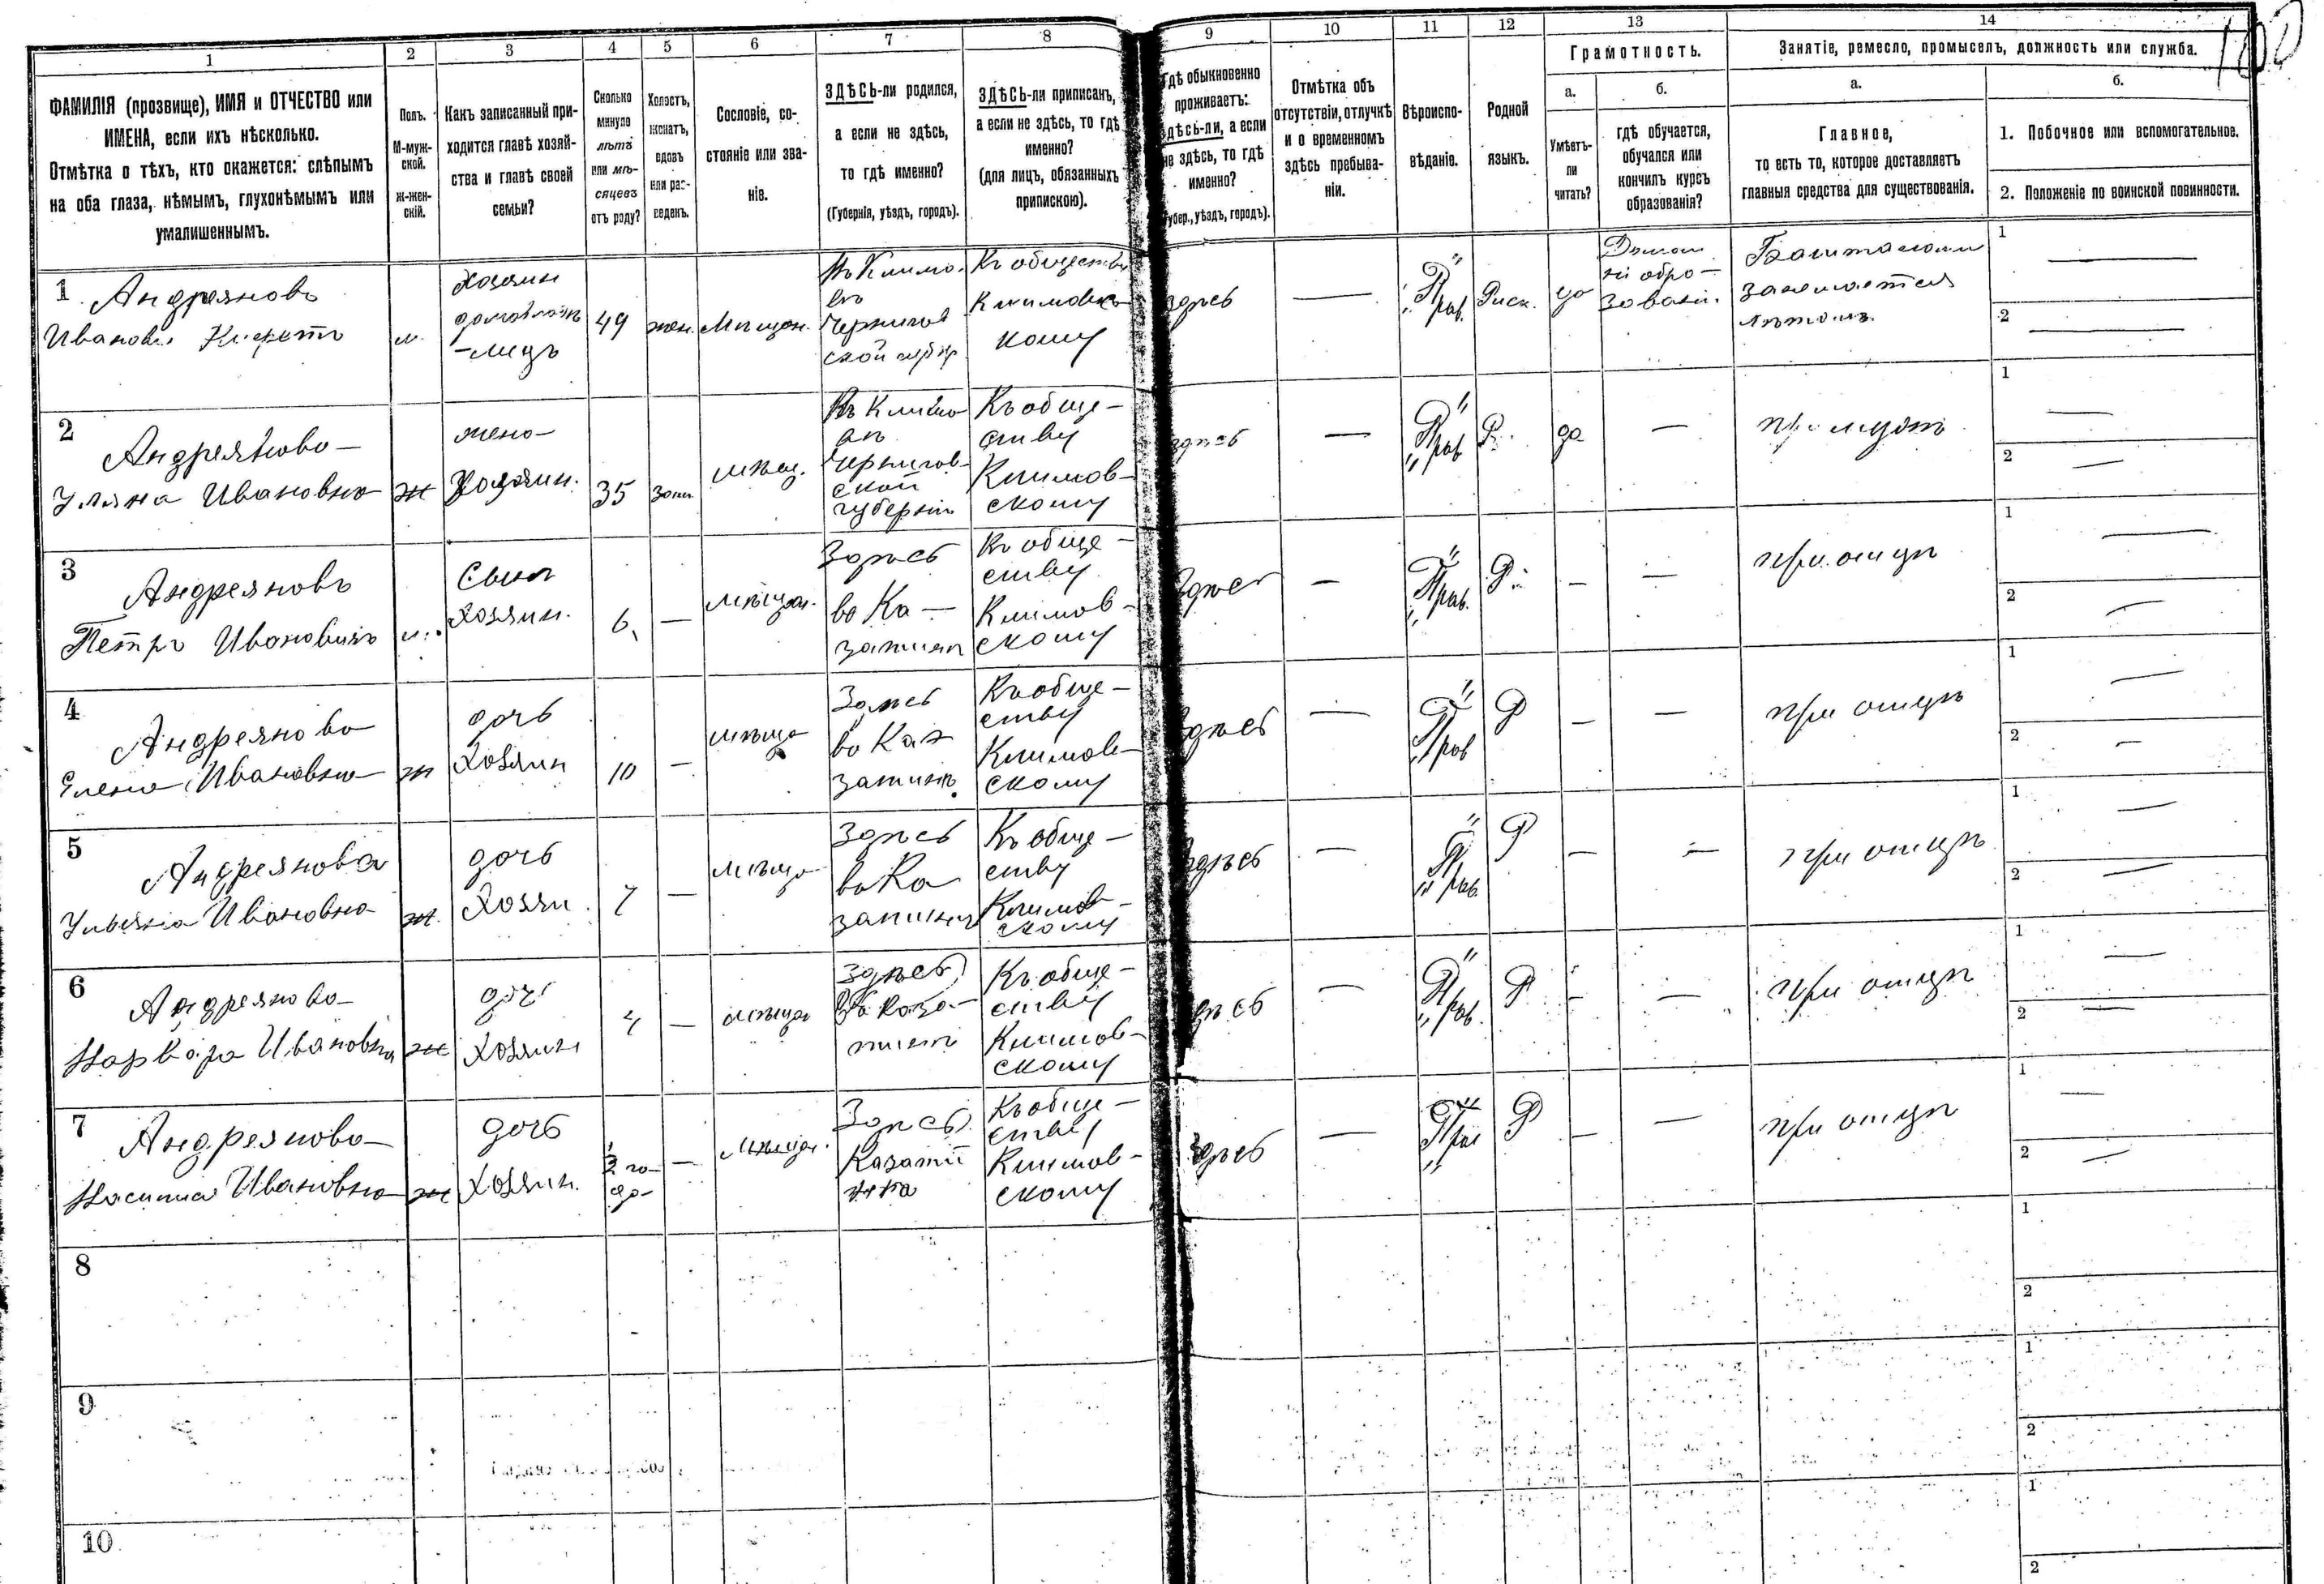 1 2 3 4 5 6 7 8 9 10 11 12 13 14
100
ФАМИЛІЯ (прозвище), ИМЯ и ОТЧЕСТВО или
ИМЕНА, если ихъ нѣсколько.
Отмѣтка о тѣхъ, кто окажется: слѣпымъ
на оба глаза, нѣмымъ, глухонѣмымъ или
умалишеннымъ.
Полъ.
М-муж-
ской.
ж-жен-
скій.
Какъ записанный при-
ходится главѣ хозяй-
ства и главѣ своей
семьи?
Сколько
минуло
лѣтъ
или мѣ-
сяцевъ
отъ роду?
Холостъ,
женатъ,
вдовъ
или раз-
веденъ.
Сословіе, со-
стояніе или зва-
ніе.
ЗДѢСЬ-ли родился,
а если не здѣсь,
то гдѣ именно?
(Губернія, уѣздъ, городъ).
ЗДѢСЬ-ли приписанъ,
а если не здѣсь, то гдѣ
именно?
(для лицъ, обязанныхъ
припискою).
Гдѣ обыкновенно
проживаетъ:
здѣсь-ли, а если
не здѣсь, то гдѣ
именно?
(Губер., уѣздъ, городъ).
Отмѣтка объ
отсутствіи, отлучкѣ
и о временномъ
здѣсь пребыва-
ніи.
Вѣроиспо-
вѣданіе.
Родной
языкъ.
Грамотность.
а.
Умѣетъ-
ли
читать?
б.
гдѣ обучается,
обучался или
кончилъ курсъ
образованія?
Занятіе, ремесло, промыселъ, должность или служба.
а.
Главное,
то есть то, которое доставляетъ
главныя средства для существованія.
б.
1. Побочное или вспомогательное.
2. Положеніе по воинской повинности.
1
Андреяновъ
Иванъ
м.
Хозяин
49
жен.
Мѣщан.
Чернигов
ской губер
Къ обществу
Климовс
кому
здѣсь
Прав.
Руск.
да
Домаш
ні обра-
зовані.
занимается
лѣтомъ.
1
2
2
Андреянова
Уляна Ивановна
ж
жена
Хозяин.
35
зам.
мѣщ.
Чернигов-
ской
губерніи
Къ обще-
ству
Климов-
скому
здѣсь
Прав
Р.
да
при мужѣ
1
2
3
Андреяновъ
Петръ Ивановичъ
м.
Сынъ
Хозяин.
6
мѣщан.
Здѣсь
во Ка-
затинѣ
Къ обще-
ству
Климов-
скому
Здѣсь
Прав.
Р.
при отцѣ
1
2
4
Андреянова
Елена Ивановна
ж
дочь
Хозяин
10
мѣща
Здѣсь
во Ка-
затинѣ.
Къ обще-
ству
Климов-
скому
Здѣсь
Прав
Р
при отцѣ
1
2
5
Андреянова
Ульяна Ивановна
ж.
дочь
Хозяи.
7
мѣща
Здѣсь
во Ка
затинѣ
Къ обще-
ству
Климов-
скому
Здѣсь
Прав
Р
при отцѣ
1
2
6
Андреянова
Варвара Ивановна
ж
доч
Хозяин
4
мѣща
здѣсь
Каза-
тинѣ
Къ обще-
ству
Климов-
скому
Здѣсь
Прав.
Р
при отцѣ
1
2
7
Андреянова
Настасия Ивановна
ж
дочь
Хозяин.
2 го-
да
мѣщан.
Здѣсь
Къ обще-
ству
Климов-
скому
Здѣсь
Прав
Р
при отцѣ
1
2
8
1
2
9
1
2
10
1
2